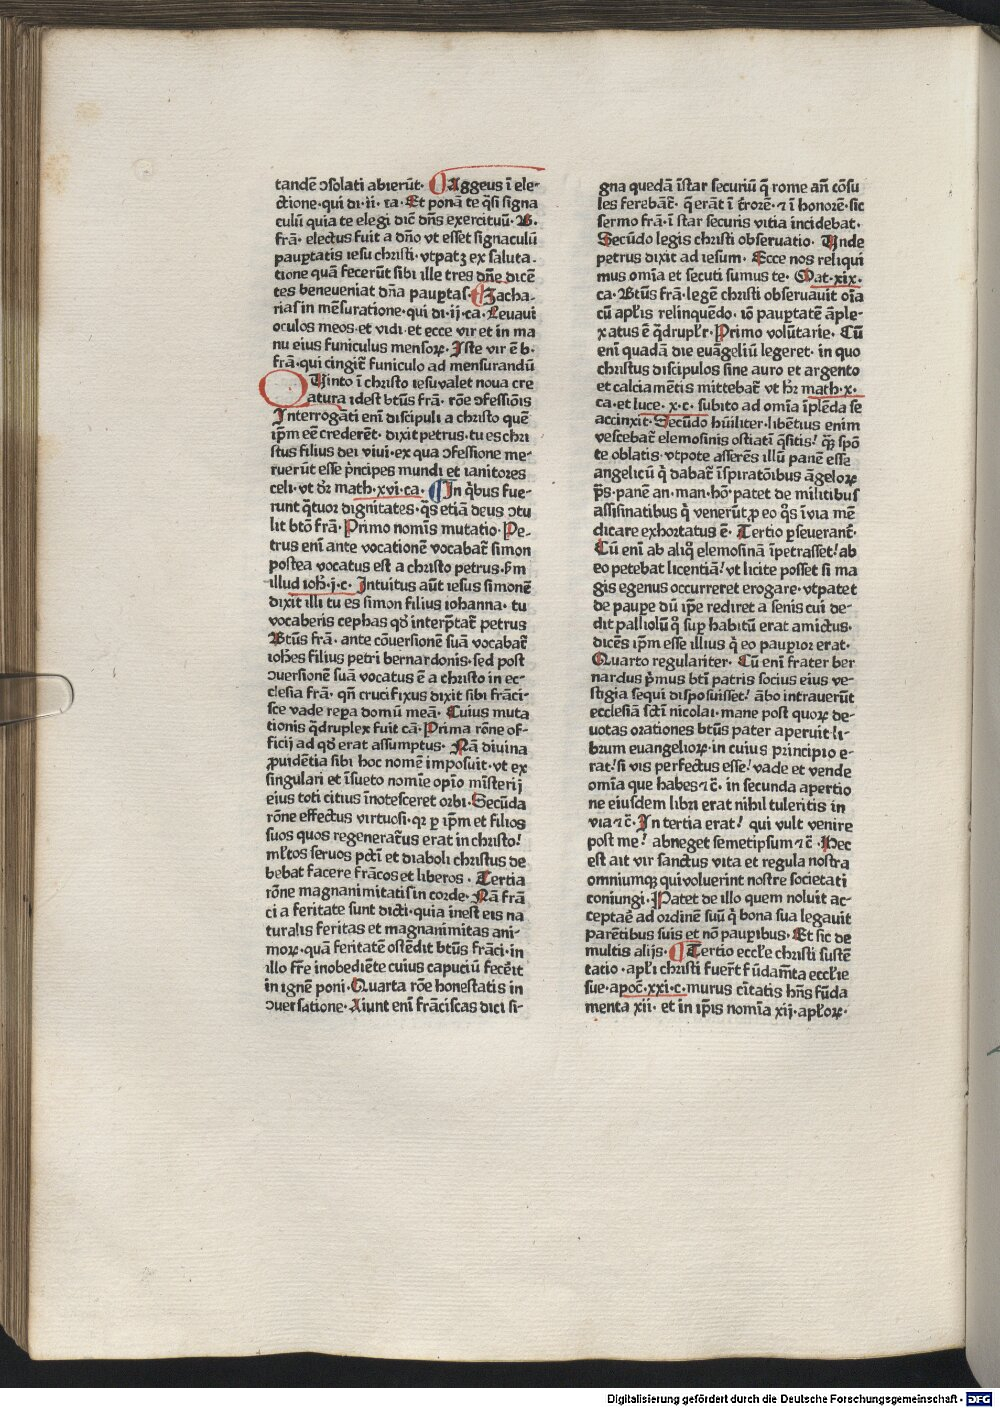 tandē ↄsolati abierūt· Aggeus ī ele-
ctione·qui di·ii· ca·Et ponā te q̄si signa
culū quia te elegi dic̄ dn̄s exercituū·B·
frā· electus fuit a dn̄o vt esset signaculū
paup̄tatis iesu christi·vtpatꝫ ex saluta-
tione quā fecerūt sibi ille tres dn̄e dicē
tes beneueniat dn̄a paup̄tas·Zacha-
rias in mēsuratione·qui di·ij·ca·Leuaui
oculos meos·et vidi·et ecce vir et in ma
nu eius funiculus mensoꝝ·Iste vir ē b·
frā·qui cingit᷑ funiculo ad mensurandū
QUinto ī christo iesu valet noua cre
atura idest btūs frā· rōe ↄfessiōis
Interrogāti enī discipuli a christo quē
ip̄m eē crederēt· dixit petrus·tu es chri
stus filius dei viui·ex qua ↄfessione me-
ruerūt esse p̄ncipes mundi et ianitores
celi·vt dr̄ math·xvi·ca·In q̄bus fue-
runt q̄tuor dignitates·q̄s etiā deus ↄtu
lit btō frā·Primo nomīs mutatio·Pe-
trus enī ante vocationē vocabat᷑ simon
postea vocatus est a christo petrus·ẜm
illud ioh̄·j·c· Intuitus aūt iesus simonē
dixit illi tu es simon filius iohanna· tu
vocaberis cephas qd̄ interp̄tat᷑ petrus
Btūs frā· ante cōuersionē suā vocabat᷑
ioh̄es filius petri bernardonis·sed post
ↄuersionē suā vocatus ē a christo in ec-
clesia frā· qn̄ crucifixus dixit sibi frāci-
sce vade repa domū meā· Cuius muta
tionis q̄druplex fuit cā·Prima rōne of-
ficij ad qd̄ erat assumptus· Nā diuina
ꝓuidētia sibi hoc nomē imposuit·vt ex
singulari et īsueto nomīe opīo mīsterij
eius toti citius īnotesceret orbi·Secūda
rōne effectus virtuosi·qꝛ ꝑ ip̄m et filios
suos quos regenerat᷑us erat in christo!
ml̄tos seruos pcti et diaboli christus de
bebat facere frācos et liberos· Tertia
rōne magnanimitatis in corde·Nā frā
ci a feritate sunt dicti·quia inest eis na
turalis feritas et magnanimitas ani-
moꝝ·quā feritatē ostēdit btūs frāci·in
illo fr̄e inobediēte cuius capuciū fecēit
in ignē poni·Quarta rōe honestatis in
ↄuersatione·Aiunt enī frāciscas dici si-
gna quedā īstar securiū q̄ rome an̄ cōsu
les ferebāt᷑· q̄ erāt ī t᷑rorē·⁊ ī honorē·sic
sermo frā·ī star securis vitia incidebat·
Secūdo legis christi obseruatio· Unde
petrus dixit ad iesum· Ecce nos reliqui
mus omīa et secuti sumus te· Mat·xix·
ca·Btūs frā·legē christi obseruauit oīa
cū apl̄is relinquēdo· iō paup̄tatē āple-
xatus ē q̄drupl̄r·Primo volūtarie· Cū
enī quadā die euāgeliū legeret· in quo
christus discipulos sine auro et argento
et calciamētis mittebat᷑ vt hr̄ math·x·
ca·et luce·x·c· subito ad omīa īplēda se
accinxit·Secūdo hūiliter·libētius enim
vescebat᷑ elemosinis ostiatī q̄sitis! qꝫ spō
te oblatis·vtpote asserēs illū panē esse
angelicū q̄ dabat᷑ īspiratōibus āgeloꝝ
p̄s·panē an·man·hō·patet de militibus
assisinatibus q̄ venerūt ꝓ eo q̄s īvia mē
dicare exhortatus ē· Tertio ꝑseuerant᷑·
Cū enī ab aliq̊ elemosinā īpetrasset! ab
eo petebat licentiā! vt licite posset si ma
gis egenus occurreret erogare·vtpatet
de paupe dū ip̄e rediret a senis cui de-
dit palliolū q̊ sup habitū erat amictus·
dicēs ip̄m esse illius q̄ eo paupior erat·
Quarto regulariter· Cū enī frater ber
nardus p̄mus btī patris socius eius ve-
stigia sequi disposuisset! ābo intrauerūt
ecclesiā scti nicolai·mane post quoꝝ de-
uotas orationes btūs pater aperuit li-
brum euangelioꝝ·in cuius principio e-
rat! si vis perfectus esse! vade et vende
omīa que habes ⁊c̄· in secunda apertio
ne eiusdem libri erat nihil tuleritis in
via ⁊c̄·In tertia erat! qui vult venire
post me! abneget semetipsum ⁊c̄ ·Hec
est ait vir sanctus vita et regula nostra
omniumqꝫ qui voluerint nostre societati
coniungi·Patet de illo quem noluit ac-
ceptaē ad ordinē suū q̄ bona sua legauit
parētibus suis et nō paupibus·Et sic de
multis alijs· Tertio eccl̄e christi sustē
tatio·apl̄i christi fuer̄t fūdam̄ta eccl̄ie
sue·apoc̄·xxi·c·murus ciītatis hn̄s fūda
menta xii· et in ip̄is nomīa xij·apl̄oꝝ·
Digitalisierung gefördert durch die Deutsche Forschungsgemeinschaft - DFG